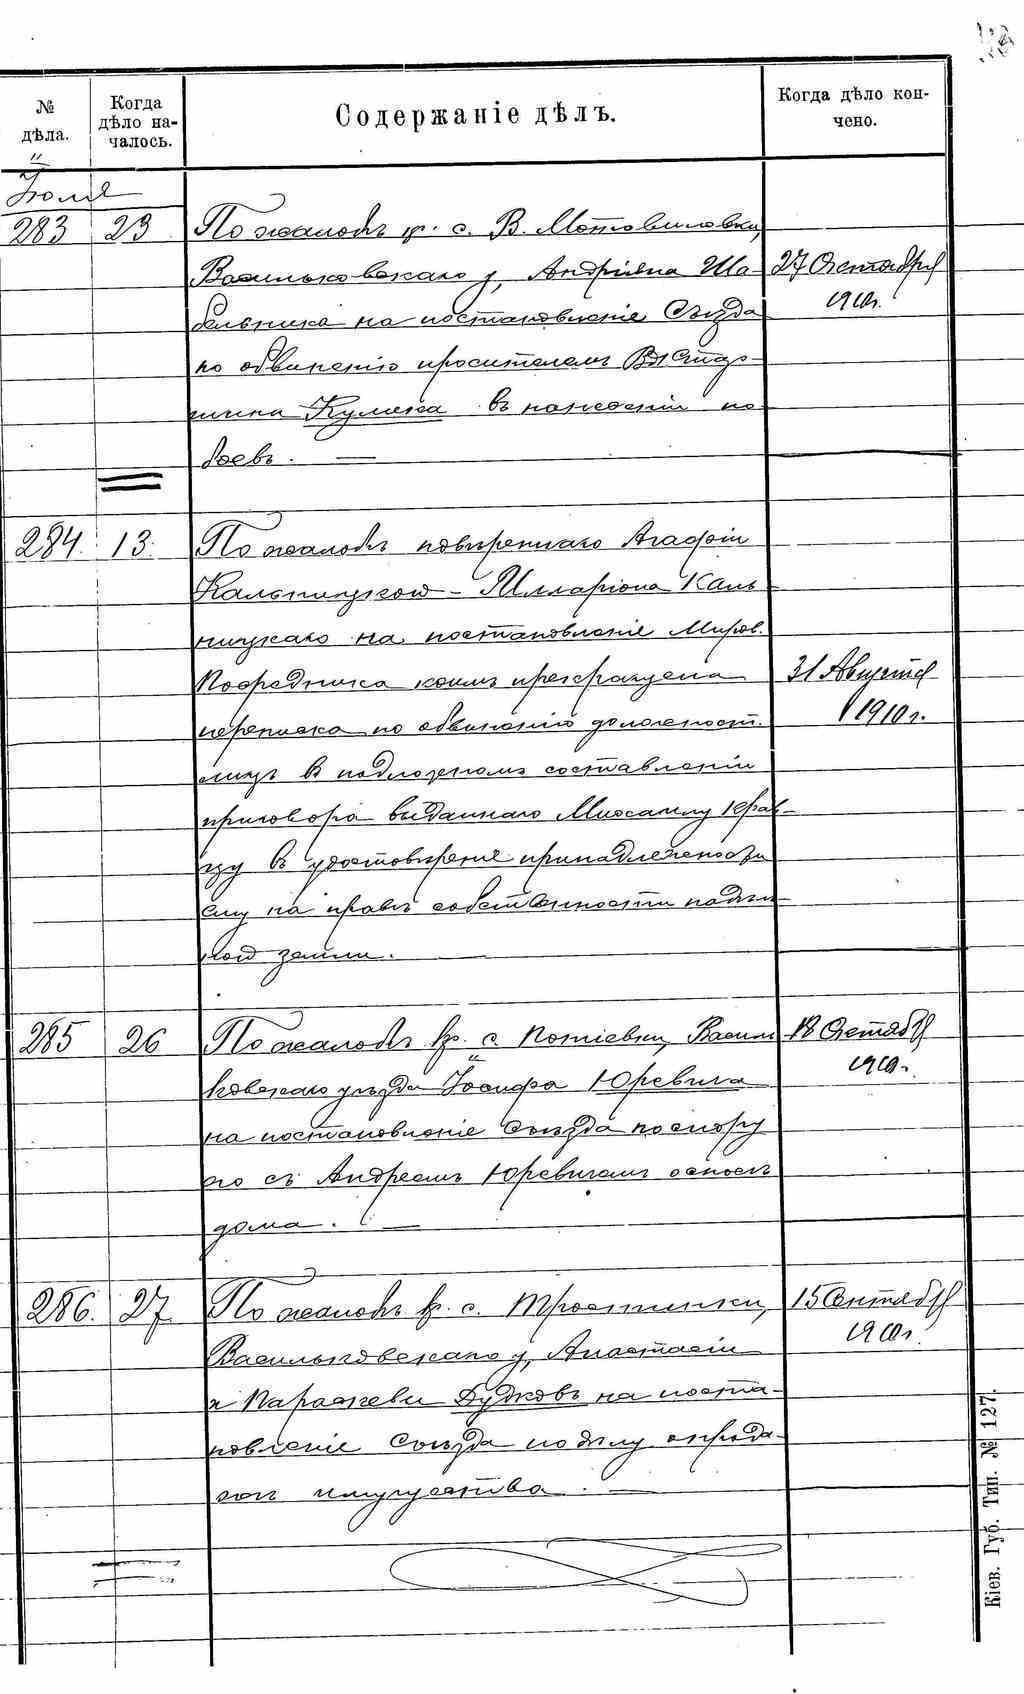 № дѣла.
Когда дѣло началось.
Содержаніе дѣлъ.
Когда дѣло кончено.
Іюля
283 23 По жалобѣ кр. с. В. Мотовиловки,
Васильковскаго у, Андріяна Ша- 27 Октября
бельника на постановленіе Съѣзда 1910г.
по обвиненію просителемъ
Кулика въ нанесеніи по
боевъ. —
284. 13. По жалобѣ повѣреннаго Агафіи
Кальницкой - Илларіона Каль
ницкаго на постановленіе Миров.
Посредника коимъ прекращена 31 Августа
переписка по обвиненію должност. 1910 г.
лицъ въ подложномъ составленіи
приговора выданнаго Михаилу Крав-
цу въ удостовѣреніе принадлежности
ему на правѣ собственности надѣль-
ной земли. —
285 26 По жалобѣ кр. с. Потіевки, Василь 18 Октября
ковскаго уѣзда Іосифа Юревича 1910г.
на постановленіе Съѣзда по спору
его съ Андреемъ Юревичемъ о сносѣ
дома. —
286. 27. По жалобѣ кр. с. Тростинки, 15 Сентября
Васильковскаго у, Анастасіи 1910г.
и Параскевы Дудковъ на поста-
новленіе Съѣзда по дѣлу о прода-
жѣ имущества. —
Кіев. Губ. Тип. № 127.